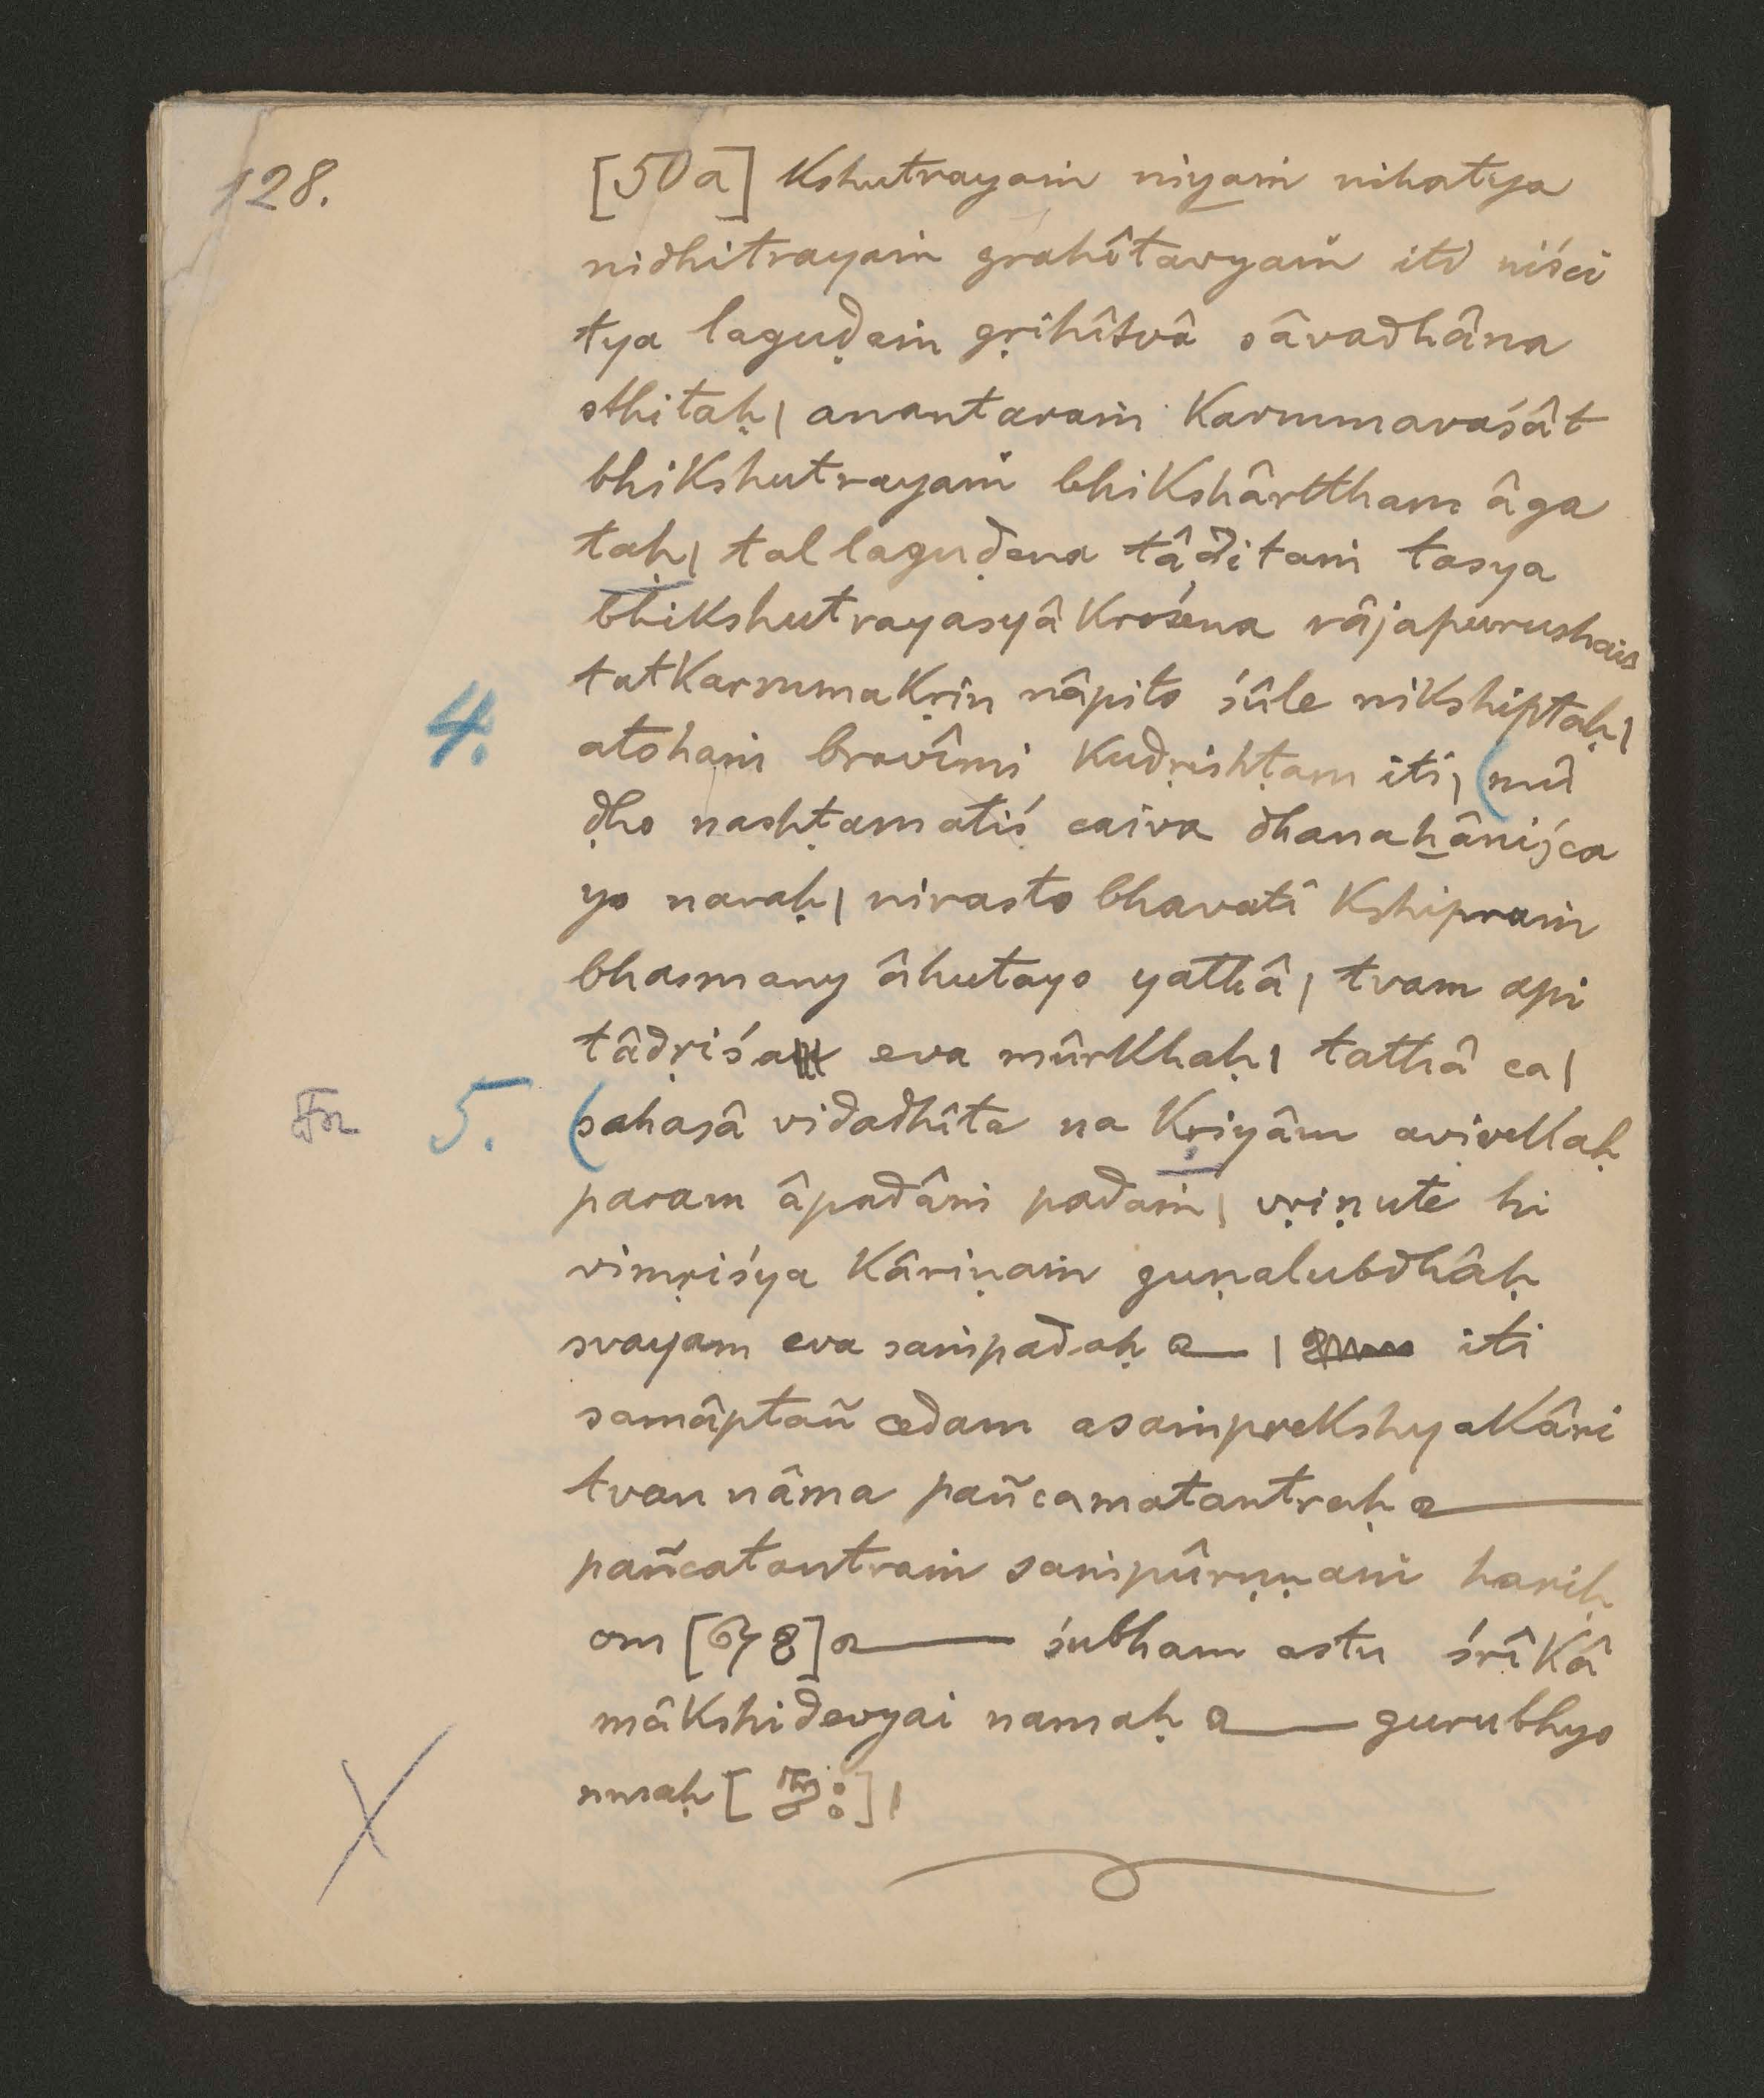 128.
[50a] kshutrayaṁ niyaṁ nihatya
nidhitrayaṁ grahîtavyaṁ iti niści
tya laguḍaṁ gṛihîtvâ sâvadhâna
sthitaḥ| anantaraṁ karmmavaśât
bhikshutrayaṁ bhikshârttham âga
taḥ| tal laguḍena tâḍitaṁ tasya
bhikshutrayasyâkrośena râjapurushais
tatkarmmakṛin nâpito śûle nikshiptaḥ|
4. atohaṁ bravîmi kudṛishṭam iti| (mû
ḍho nashṭamatiś caiva dhanahâniśca
yo naraḥ| nirasto bhavati kshipraṁ
bhasmany âhutayo yathâ| tvam api
tâdṛiśa eva mûrkhaḥ| tathâ ca|
5. (sahasâ vidadhîta na kṛiyâm avivekaḥ
param âpadâṁ padaṁ| vṛiṇute hi
vimṛiśya kâriṇaṁ guṇalubdhâḥ
svayam eva saṁpadaḥ | iti
samâptañ cedam asaṁprekshyakâri
tvan nâma pañcamatantraḥ
pañcatantraṁ saṁpûrṇṇaṁ hariḥ
om [ ] śubham astu śrîkâ
mâkshidevyai namaḥ gurubhyo
nmaḥ [ ]|